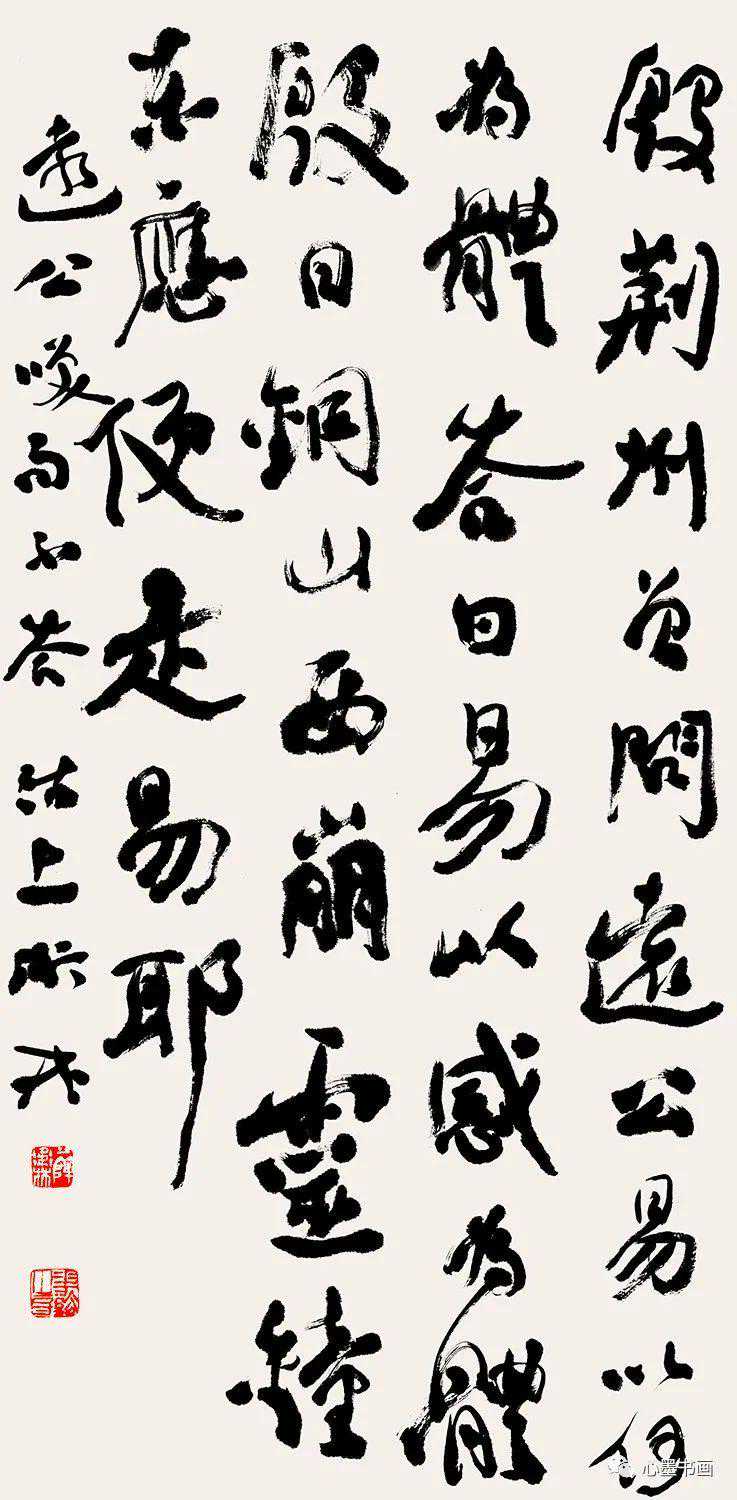 殷荆州曾問遠公易以何
為體荅曰易以感為體
殷曰銅山西崩靈鐘
東應便是易耶
遠公咲而不荅沽上
心墨书画